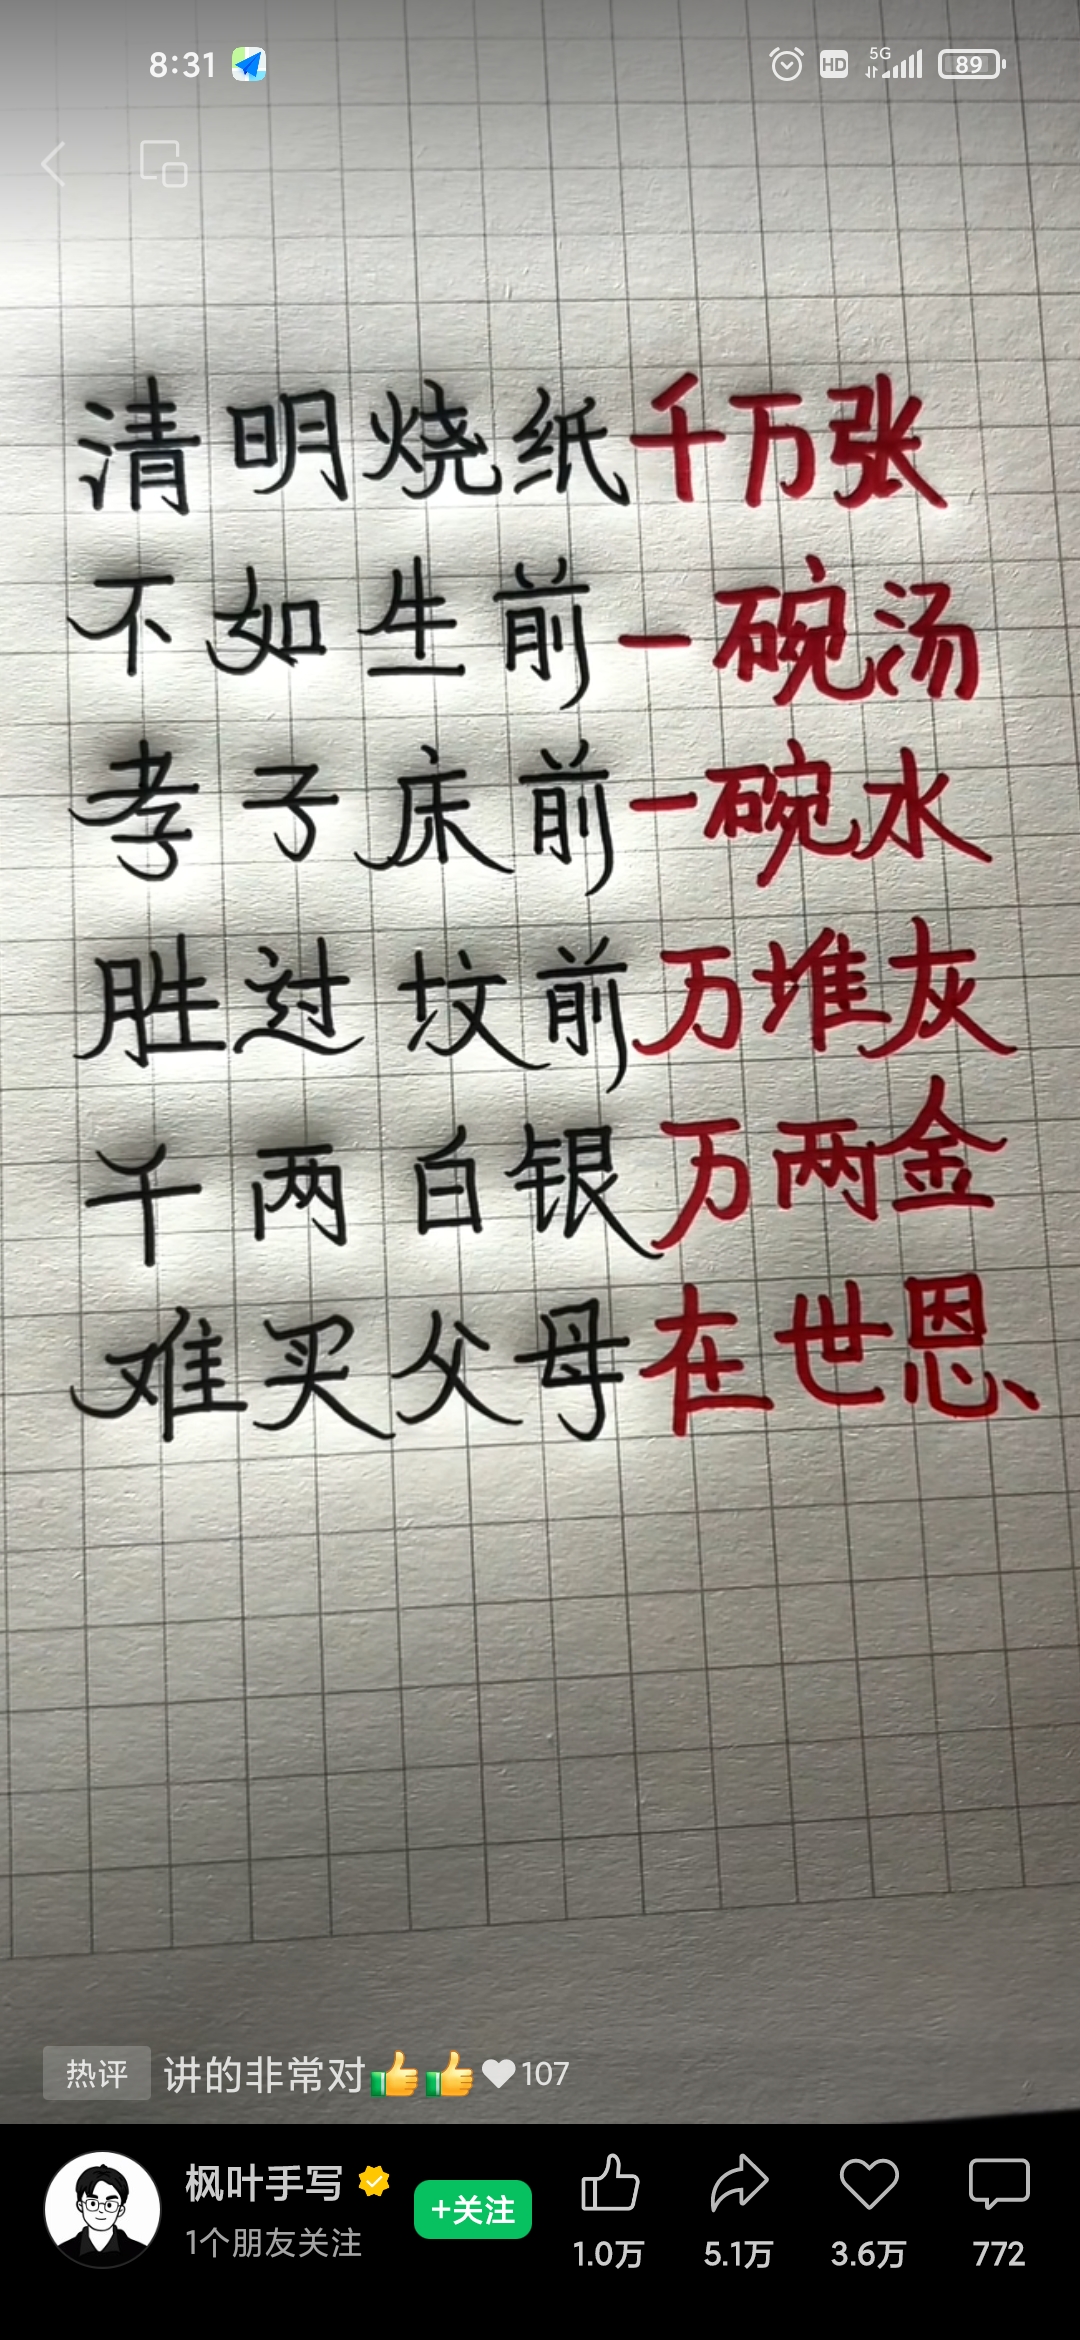 8:31
HD 5G 89
清明烧纸千万张
不如生前一碗汤
孝子床前一碗水
胜过坟前万堆灰
千两白银万两金
难买父母在世恩、
热评 讲的非常对👍👍 107
枫叶手写
1个朋友关注
+关注
1.0万 5.1万 3.6万 772